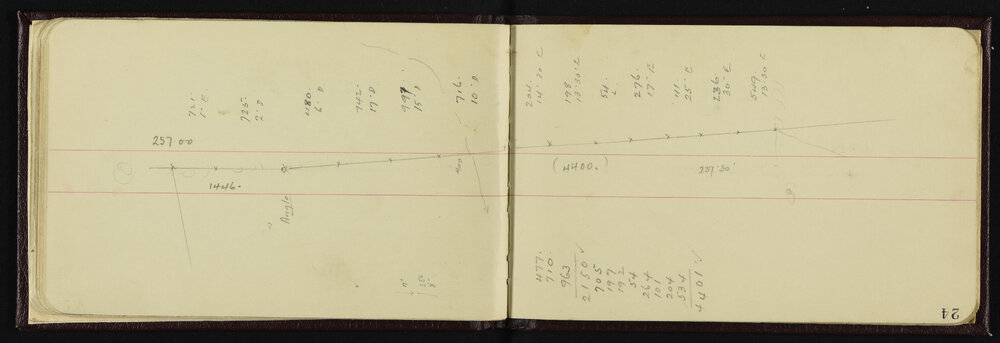 721.
1° E.
725.
2° D
480.
6° D
742.
17° D
997
15° D
716.
10° D
204.
14° 30 E
198
13° 30' E
54.
E
276.
17° E
111
25° E
236.
30° E
549
13° 30' E
257 00
1446.
Angle
400
(4400.)
477.
710.
963
2150 ✓
705
197
192
54
264
101
204
534
4401 ✓
24